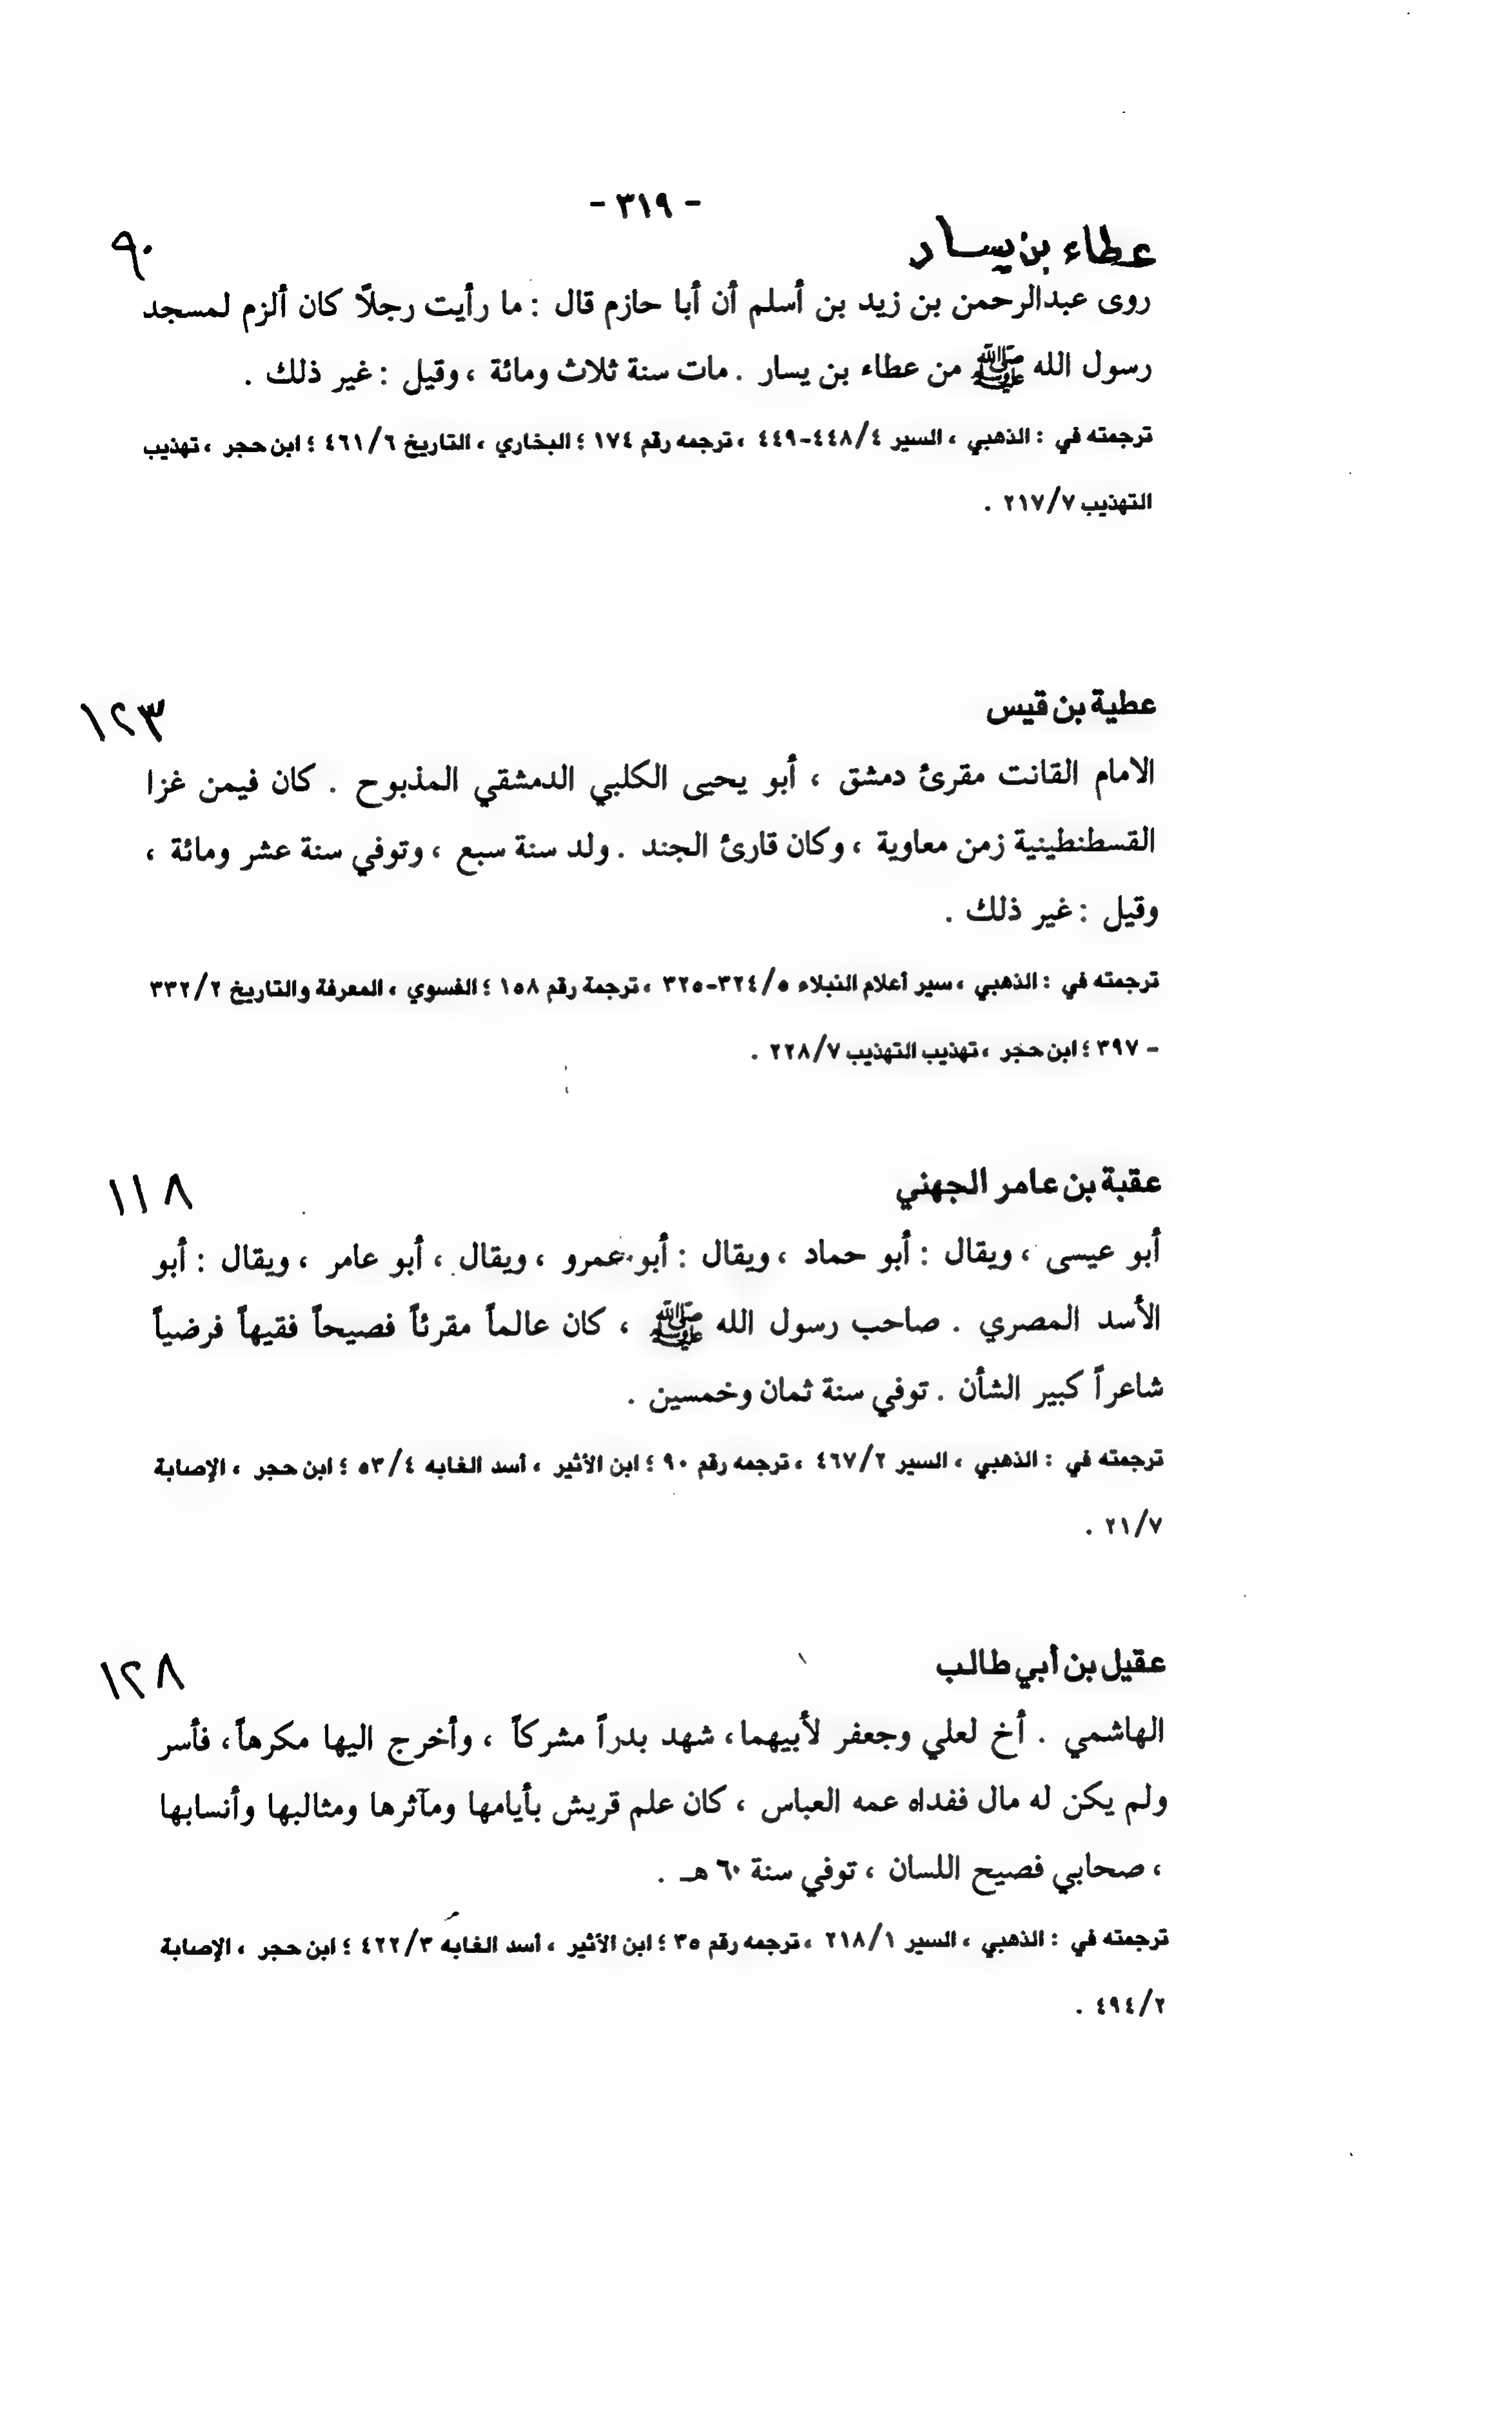 - ٣١٩ -
عطاء بن يسار ٩٠
روى عبدالرحمن بن زيد بن أسلم أن أبا حازم قال : ما رأيت رجلاً كان ألزم لمسجد
رسول الله ﷺ من عطاء بن يسار . مات سنة ثلاث ومائة ، وقيل : غير ذلك .
ترجمته في : الذهبي ، السير ٤/ ٤٤٨-٤٤٩ ، ترجمه رقم ١٧٤ ؛ البخاري ، التاريخ ٦/ ٤٦١ ؛ ابن حجر ، تهذيب
التهذيب ٧/ ٢١٧ .
عطية بن قيس ١٢٣
الامام القانت مقرئ دمشق ، أبو يحيى الكلبي الدمشقي المذبوح . كان فيمن غزا
القسطنطينية زمن معاوية ، وكان قارئ الجند . ولد سنة سبع ، وتوفي سنة عشر ومائة ،
وقيل : غير ذلك .
ترجمته في : الذهبي ، سير أعلام النبلاء ٥/ ٣٢٤-٣٢٥ ، ترجمة رقم ١٥٨ ؛ الفسوي ، المعرفة والتاريخ ٢/ ٣٣٢
- ٣٩٧ ؛ ابن حجر ، تهذيب التهذيب ٧/ ٢٢٨ .
عقبة بن عامر الجهني ١١٨
أبو عيسى ، ويقال : أبو حماد ، ويقال : أبو عمرو ، ويقال ، أبو عامر ، ويقال : أبو
الأسد المصري . صاحب رسول الله ﷺ ، كان عالماً مقرئاً فصيحاً فقيهاً فرضياً
شاعراً كبير الشأن . توفي سنة ثمان وخمسين .
ترجمته في : الذهبي ، السير ٢/ ٤٦٧ ، ترجمه رقم ٩٠ ؛ ابن الأثير ، أسد الغابه ٤/ ٥٣ ؛ ابن حجر ، الإصابة
٧/ ٢١ .
عقيل بن أبي طالب ١٢٨
الهاشمي . أخ لعلي وجعفر لأبيهما، شهد بدراً مشركاً ، وأخرج اليها مكرهاً، فأسر
ولم يكن له مال ففداه عمه العباس ، كان علم قريش بأيامها ومآثرها ومثالبها وأنسابها
، صحابي فصيح اللسان ، توفي سنة ٦٠ هـ .
ترجمته في : الذهبي ، السير ١/ ٢١٨ ، ترجمه رقم ٣٥ ؛ ابن الأثير ، أسد الغابه ٣/ ٤٢٢ ؛ ابن حجر ، الإصابة
٢/ ٤٩٤ .